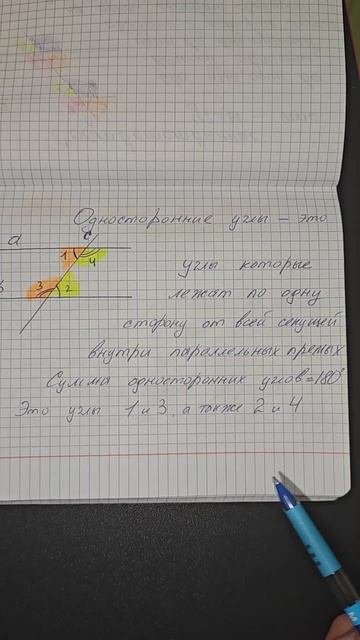 Односторонние углы – это
c
a
1
4
углы которые
3
2
лежат по одну
сторону от всей секущей
внутри параллельных прямых
Сумма односторонних углов=180°
Это углы 1 и 3, а также 2 и 4